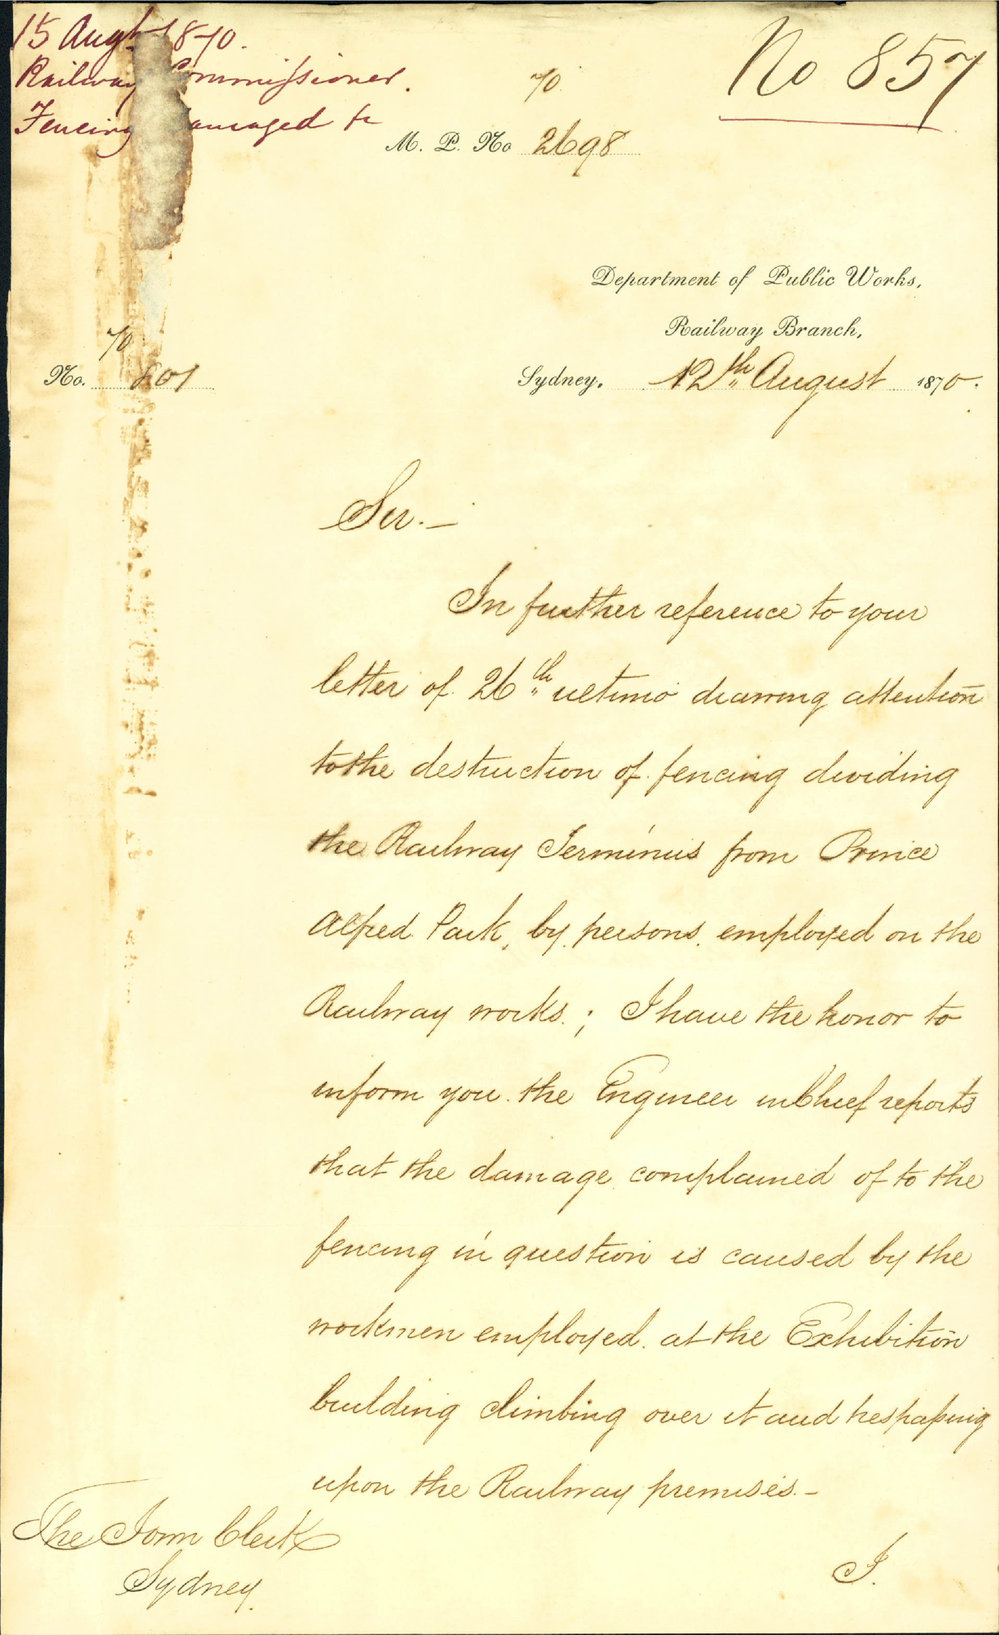 15 Augt 1870.
Railway Commissioner.
Fencing damaged &c
No 857
70
M. P. No 2698
Department of Public Works,
Railway Branch,
70
No. 801
Sydney, 12th August 1870.
Sir.—
In further reference to your
letter of 26th ultimo drawing attention
to the destruction of fencing dividing
the Railway Terminus from Prince
Alfred Park, by persons employed on the
Railway works; I have the honor to
inform you the Engineer in Chief reports
that the damage complained of to the
fencing in question is caused by the
workmen employed at the Exhibition
building climbing over it and trespassing
upon the Railway premises.—
The Town Clerk
Sydney.
I.